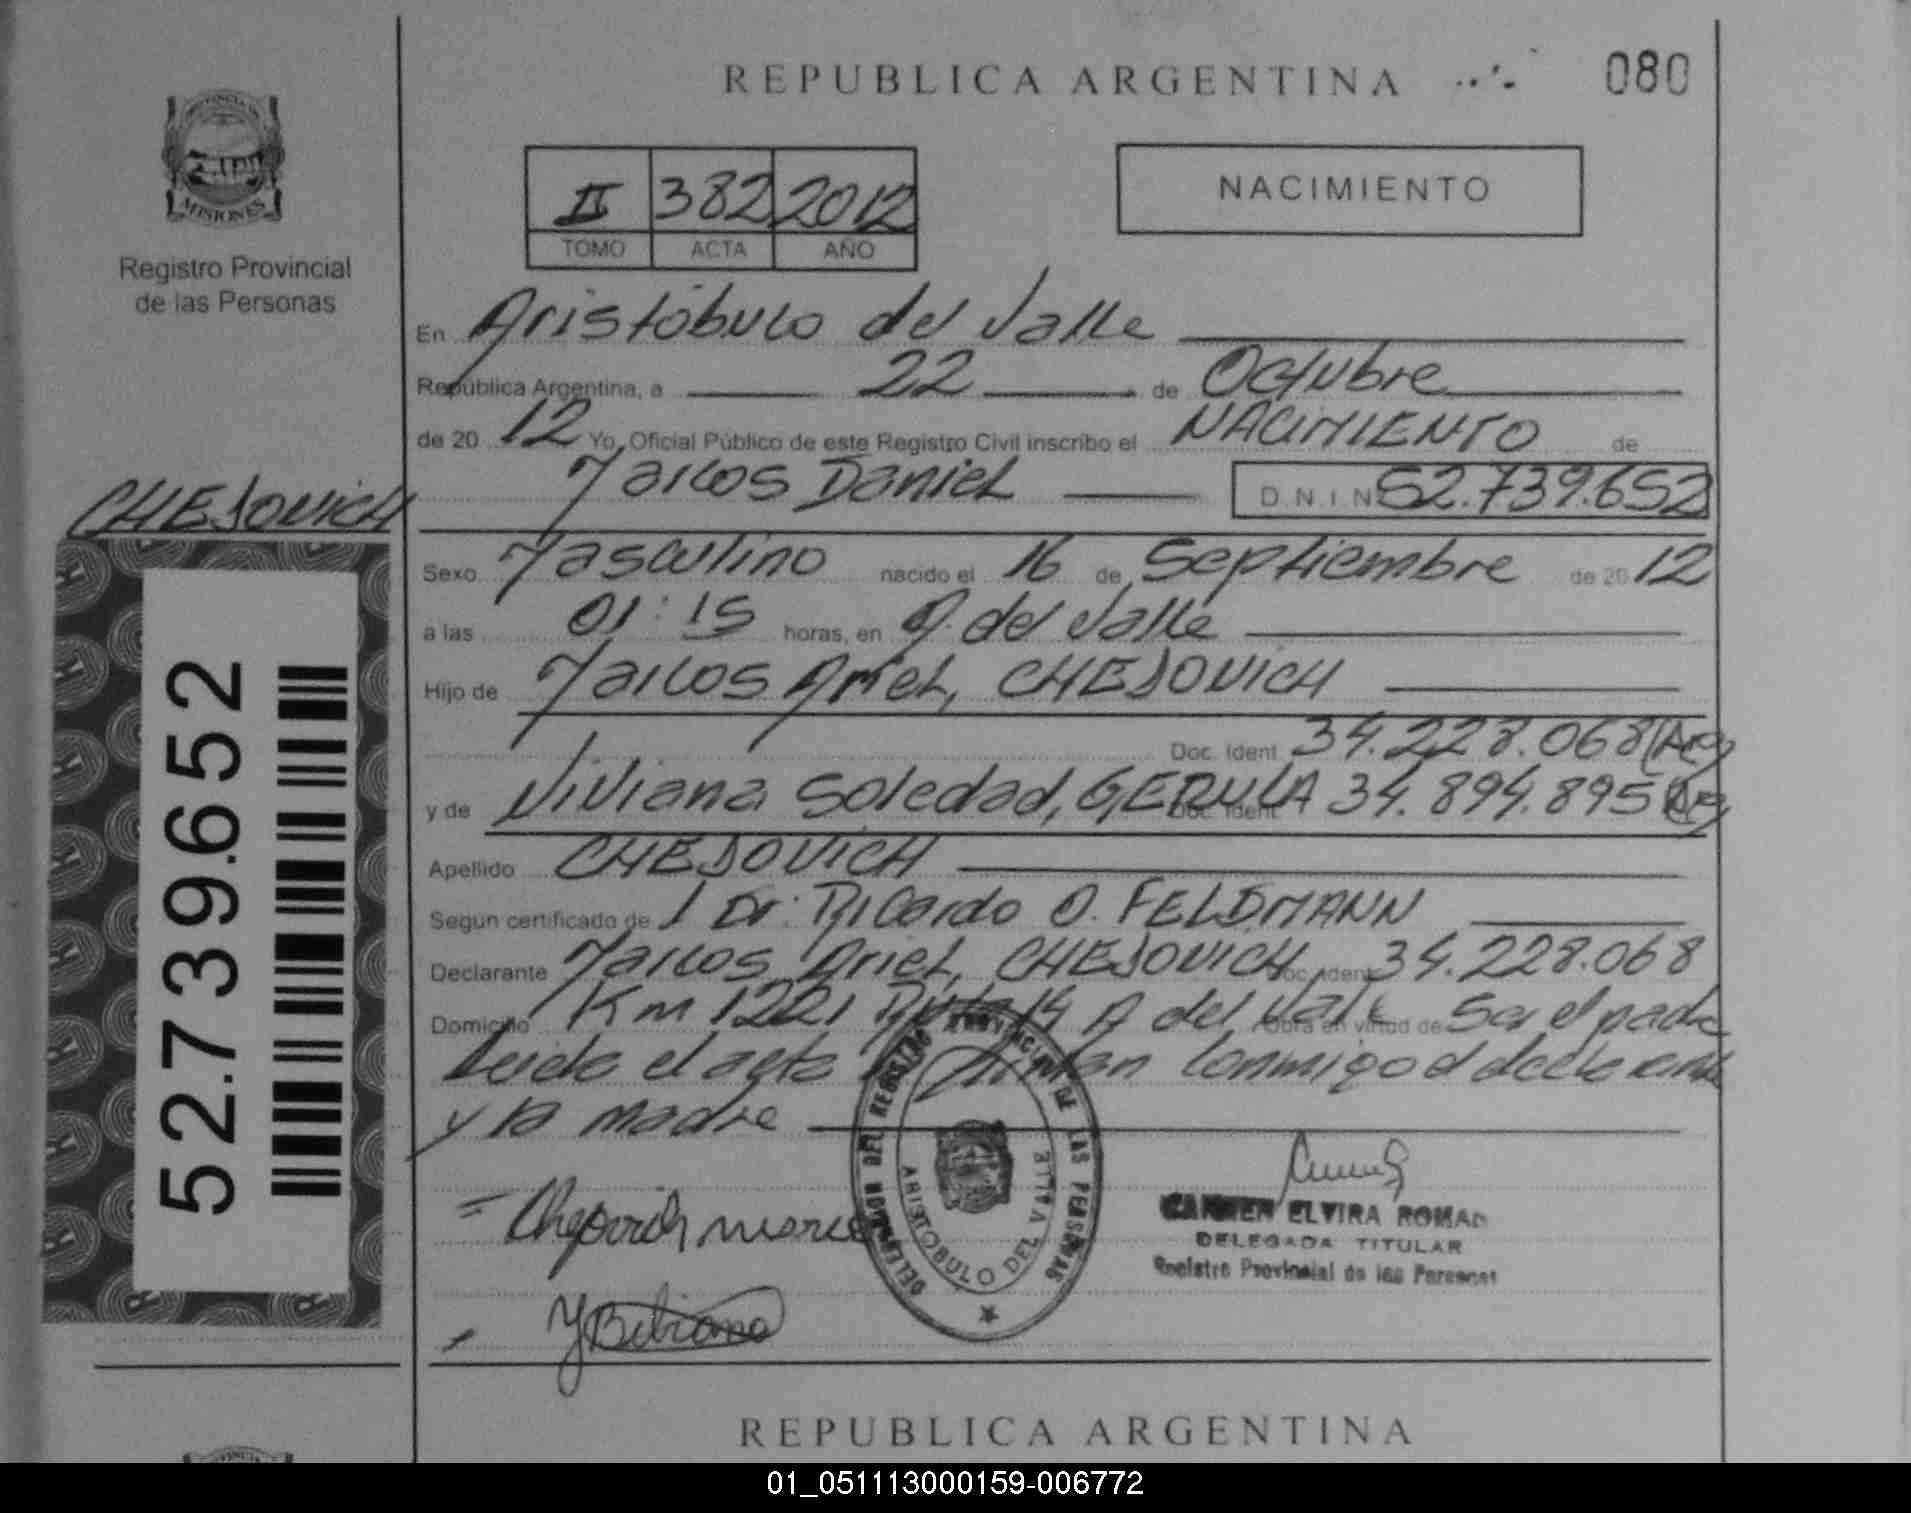 REPUBLICA ARGENTINA
080
PROVINCIA DE
MISIONES
Registro Provincial
de las Personas
II 382 2012
TOMO ACTA AÑO
NACIMIENTO
En Aristóbulo del Valle
República Argentina, a 22 de Octubre
de 20 12 Yo, Oficial Público de este Registro Civil inscribo el NACIMIENTO de
Marcos Daniel D.N.I. Nº 52.739.652
CHEJOVICH
Sexo Masculino nacido el 16 de Septiembre de 20 12
a las 01:15 horas, en A. del Valle
Hijo de Marcos Ariel, CHEJOVICH
Doc. Ident. 34.228.068 (Arg)
y de Viviana Soledad, GERULA Doc. Ident. 34.894.895 (Arg)
Apellido CHEJOVICH
Según certificado de Dr. Ricardo O. FELDMANN
Declarante Marcos Ariel, CHEJOVICH Doc. Ident. 34.228.068
Domicilio Km 1221 Ruta 14 A del Valle Obra en virtud de Ser el padre
Leída el acta firman conmigo el declarante
y la madre
52.739.652
DELEGACION DEL REGISTRO PROVINCIAL DE LAS PERSONAS
ARISTOBULO DEL VALLE
CARMEN ELVIRA ROMAN
DELEGADA TITULAR
Registro Provincial de las Personas
REPUBLICA ARGENTINA
01_051113000159-006772